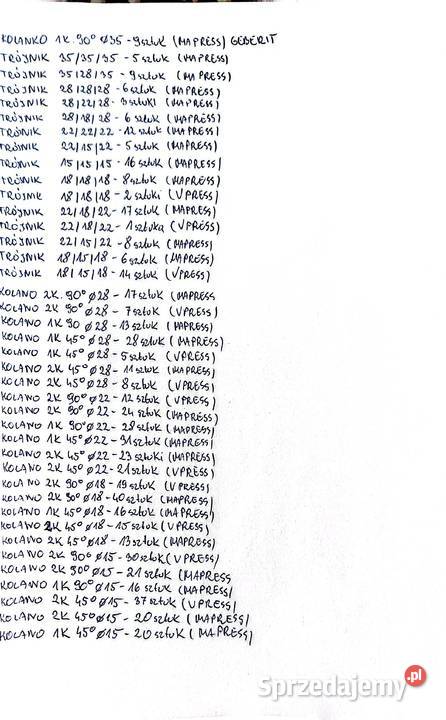 KOLANKO 1K. 90° ø35 - 9sztuk (MAPRESS) GEBERIT
TRÓJNIK 35/35/35 - 5 sztuk (MAPRESS)
TRÓJNIK 35/28/35 - 9sztuk (MAPRESS)
TRÓJNIK 28/28/28 - 6sztuk (MAPRESS)
TRÓJNIK 28/22/28 - 3sztuki (MAPRESS)
TRÓJNIK 28/18/28 - 6 sztuk (MAPRESS)
TRÓJNIK 22/22/22 - 12sztuk (MAPRESS)
TRÓJNIK 22/15/22 - 5 sztuk (MAPRESS)
TRÓJNIK 15/15/15 - 16sztuk (MAPRESS)
TRÓJNIK 18/18/18 - 8sztuk (MAPRESS)
TRÓJNIK 18/18/18 - 2sztuki (VPRESS)
TRÓJNIK 22/18/22 - 17sztuk (MAPRESS)
TRÓJNIK 22/18/22 - 1sztuka (VPRESS)
TRÓJNIK 22/15/22 - 8sztuk (MAPRESS)
TRÓJNIK 18/15/18 - 6sztuk (MAPRESS)
TRÓJNIK 18/15/18 - 14sztuk (VPRESS)
KOLANO 2K. 90° ø28 - 17sztuk (MAPRESS
KOLANO 2K 90° ø28 - 7sztuk (VPRESS)
KOLANO 1K 90 ø28 - 13sztuk (MAPRESS)
KOLANO 1K 45° ø28 - 28sztuk (MAPRESS)
KOLANO 1K 45° ø28 - 5sztuk (VPRESS)
KOLANO 2K 45° ø28 - 11sztuk (MAPRESS)
KOLANO 2K 45° ø28 - 8sztuk (VPRESS)
KOLANO 2K 90° ø22 - 12sztuk (VPRESS)
KOLANO 2K 90° ø22 - 24 sztuk (MAPRESS)
KOLANO 1K 90° ø22 - 28sztuk (MAPRESS)
KOLANO 1K 45° ø22 - 31sztuk (MAPRESS)
KOLANO 2K 45° ø22 - 23sztuki (MAPRESS)
KOLANO 2K 45° ø22 - 21sztuk (VPRESS)
KOLANO 2K 90° ø18 - 19sztuk (VPRESS)
KOLANO 2K 90° ø18 - 40sztuk (MAPRESS)
KOLANO 1K 45° ø18 - 16sztuk (MAPRESS)
KOLANO 2K 45° ø18 - 15sztuk (VPRESS)
KOLANO 2K 45° ø18 - 13sztuk (MAPRESS)
KOLANO 2K 90° ø15 - 30sztuk (VPRESS)
KOLANO 2K 90° ø15 - 21sztuk (MAPRESS
KOLANO 1K 90° ø15 - 16 sztuk (MAPRESS)
KOLANO 2K 45° ø15 - 37sztuk (VPRESS)
KOLANO 2K 45° ø15 - 20sztuk (MAPRESS)
KOLANO 1K 45° ø15 - 20sztuk (MAPRESS)
Sprzedajemy.pl